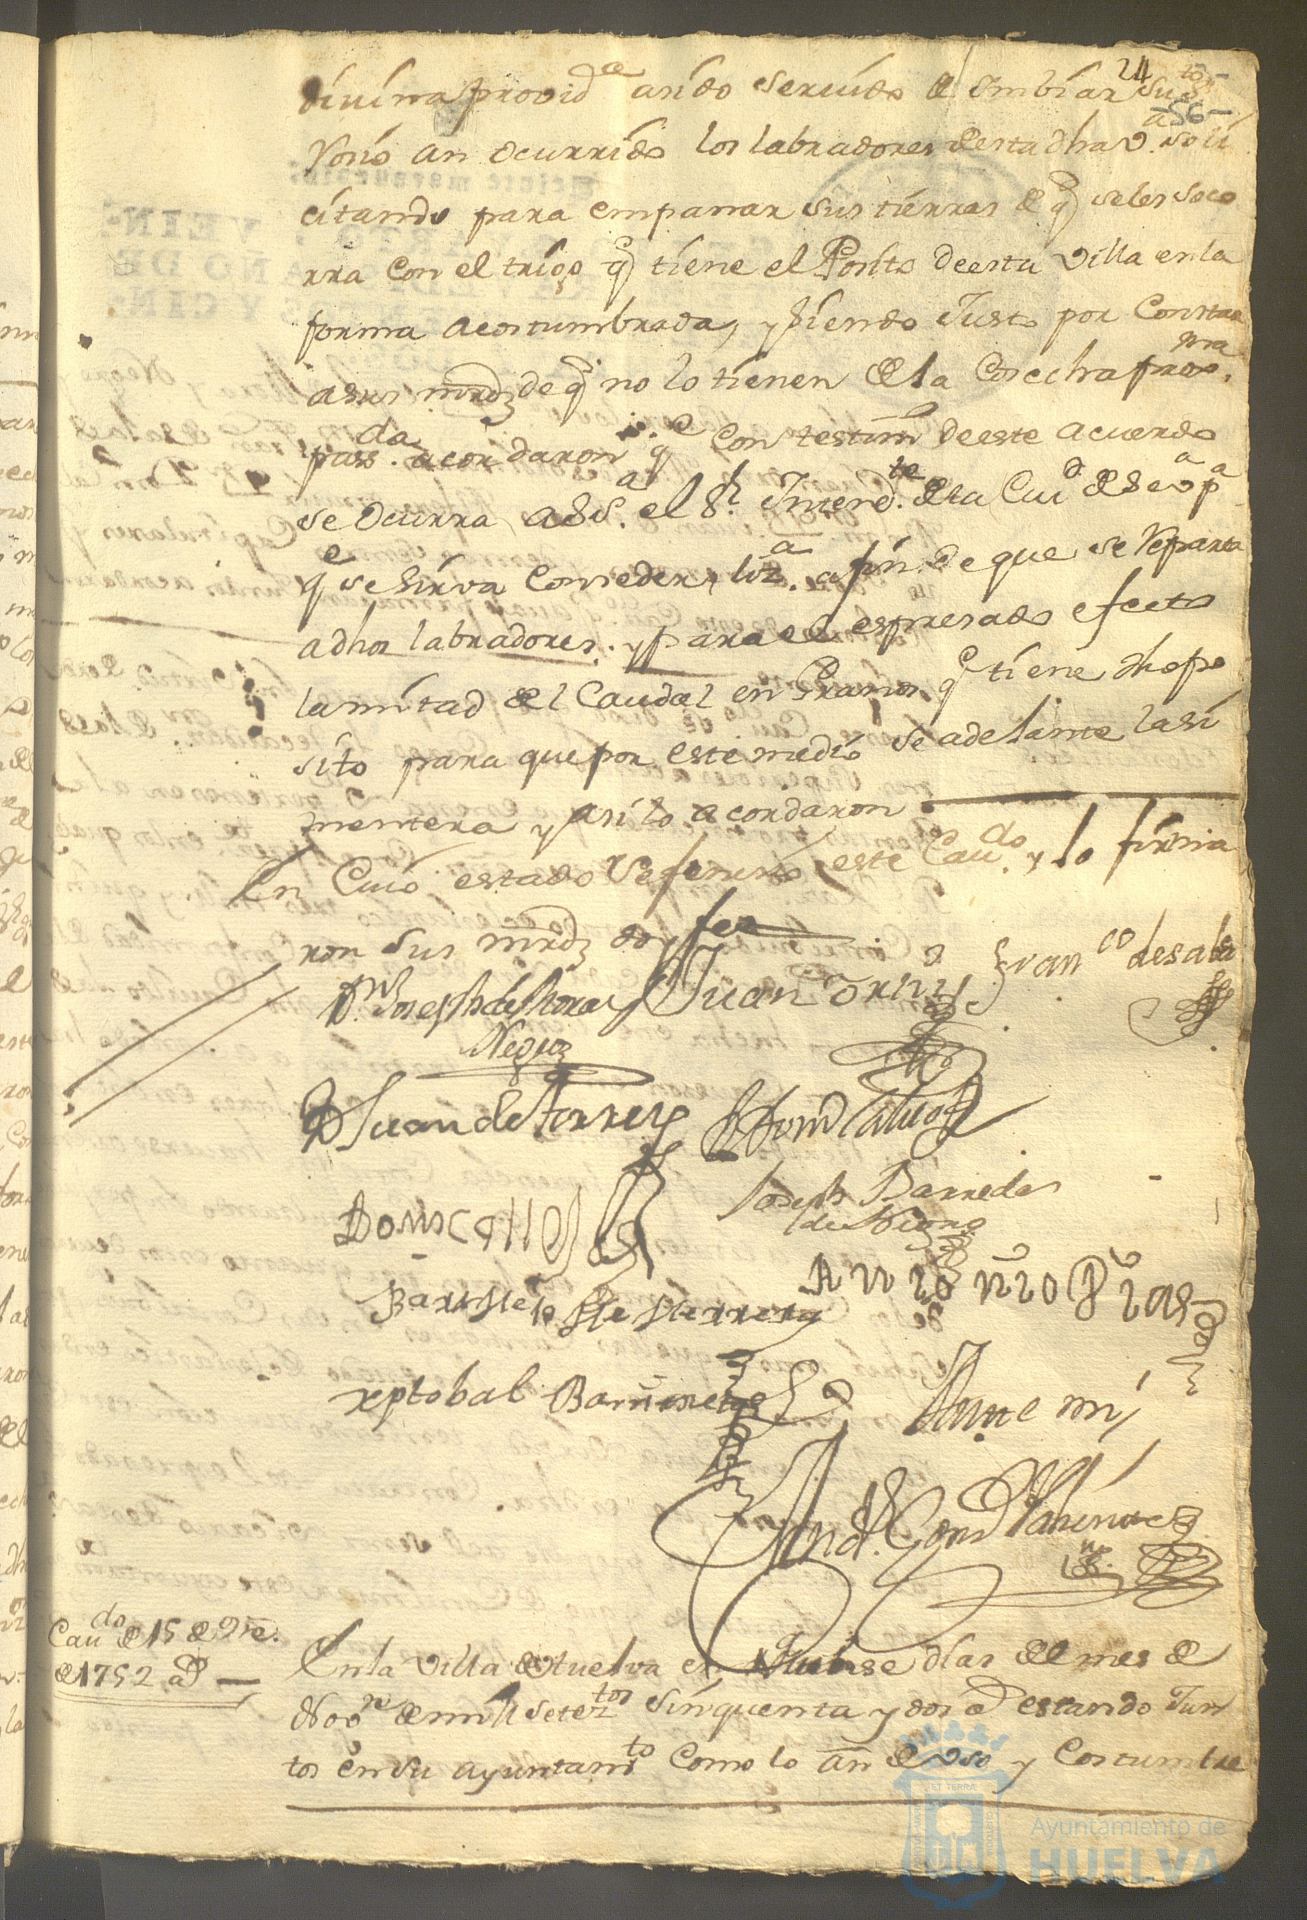 24
56
divina provid.ª asido seruido de Imbiar su
Rosio an ocurrido los labradores de esta dha V.ª soli
citando para empanar sus tierras de q̃ seles soco
rra con el trigo q̃ tiene el Posito de esta Villa en la
forma acostumbrada, y siendo Justo por Constar
a sus mrds de q̃ no lo tienen de la Cosecha prox.ma
passda. acordaron qe Con testim.º de este acuerdo
se Ocurra a S S.ª el S.r Intend.te de la Ciud de Seva pa
qe se sirva Conceder liz.ª a fin de que se Reparta
a dhos labradores, y para el espresado efecto
la mitad del Caudal en Granos q̃ tiene dho po
sito para que por este medio se adelante la si
mentera y asi lo acordaron
En Cuio estado se feneció este Cau.do y lo firma
ron Sus mrds doy fee
Dn Joseph de
Negrz
Juan
Fran.co de sala
D Juan de Torres
Joseph Barreda
Domc
Barttolo de Herrera
Antonio Dias
xptobal Barrionebo
Ante mí
And.s Gonz
Caudo de 15 de Nre.
de 1752 a.s
En la Villa de Huelva en quinse dias del mes de
Nove de mill setez.tos sinquenta y dos a.s estando Jun
tos en su ayuntam.to Como lo an de Vso y Costumbre
ET TERRÆ
Ayuntamiento de
HUELVA